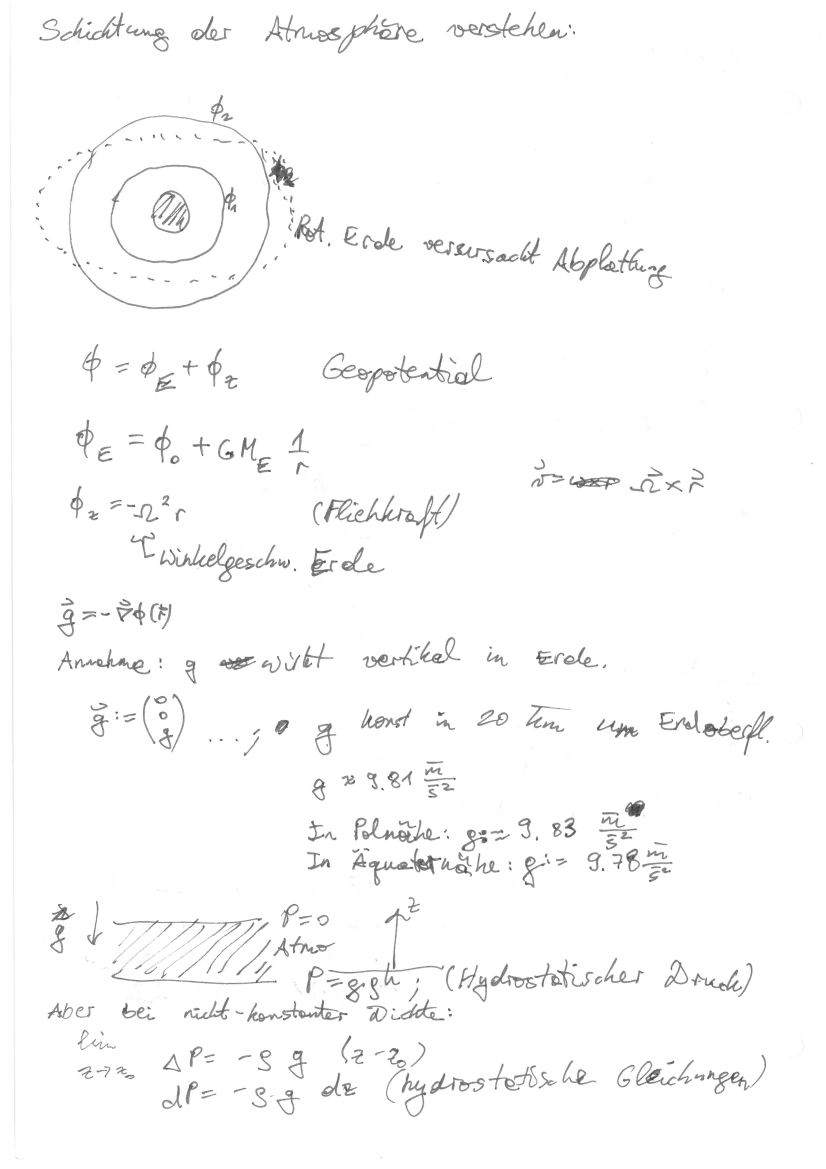 Schichtung der Atmosphäre verstehen:
ϕ₂
ϕ₁
Rot. Erde verursacht Abplattung
ϕ = ϕ_E + ϕ_z Geopotential
ϕ_E = ϕ₀ + G M_E 1/r
v⃗ = Ω⃗ × r⃗
ϕ_z = -Ω² r (Fliehkraft)
Winkelgeschw. Erde
g⃗ = -∇⃗ϕ(r⃗)
Annahme: g wirkt vertikal in Erde.
g⃗ := (0 0 g) ...; g konst in 20 km um Erdoberfl.
g ≈ 9.81 m/s²
In Polnähe: g := 9.83 m/s²
In Äquatornähe: g := 9.78 m/s²
g P=0 z
Atmo
P = ϱ·g h ; (Hydrostatischer Druck)
Aber bei nicht-konstanter Dichte:
lim z→z₀ ΔP = -ϱ g (z-z₀)
dP = -ϱ·g dz (hydrostatische Gleichungen)